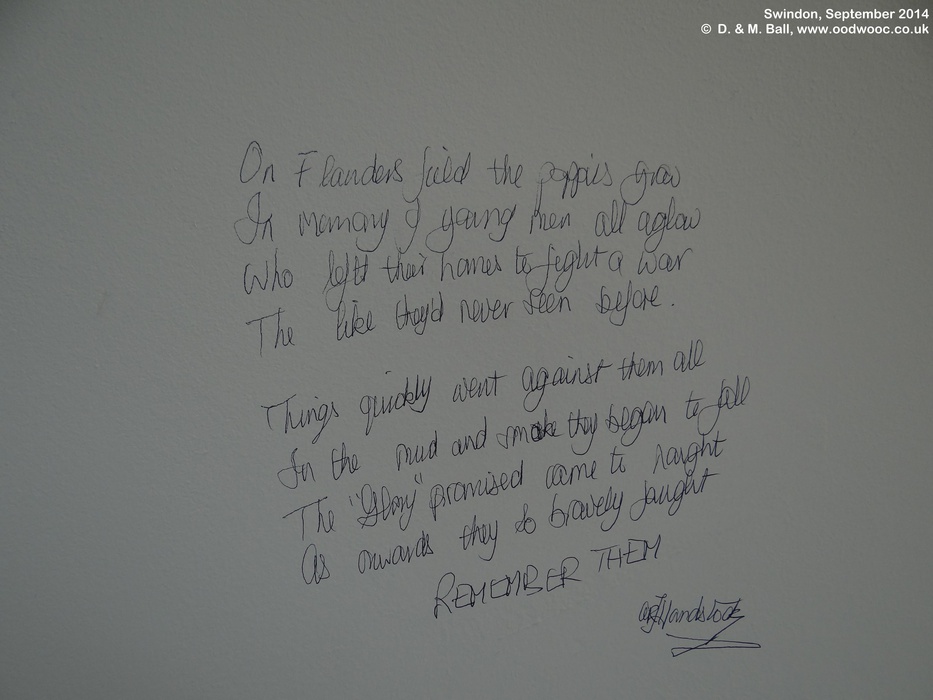 Swindon, September 2014
© D. & M. Ball, www.oodwooc.co.uk
On Flanders field the poppies grow
In memory of young men all aglow
Who left their homes to fight a war
The like they'd never seen before.
Things quickly went against them all
In the mud and smoke they began to fall
The "Glory" promised came to naught
As onwards they so bravely faught
REMEMBER THEM